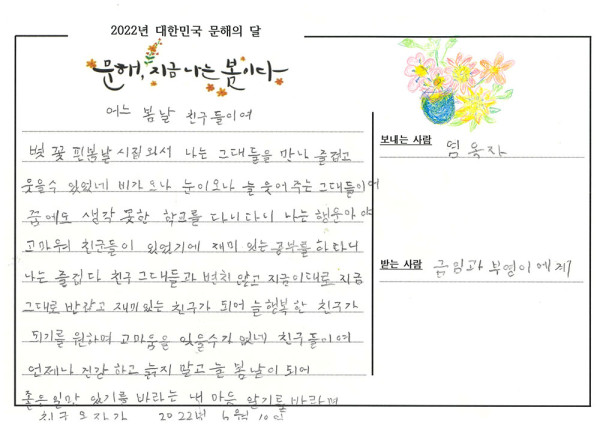 2022년 대한민국 문해의 달
문해, 지금 나는 봄이다
어느 봄날 친구들이여
벚꽃 핀봄날 시집 와서 나는 그대들을 만나 즐겁고
웃을수 있었네 비가오나 눈이오나 늘 웃어 주는 그대들이여
꿈에도 생각 못한 학교를 다니다니 나는 행운아야
고마워 친군들이 있었기에 재미 있는 공부를 하다니
나는 즐겁다 친구 그대들과 변치 않고 지금이대로 지금
그대로 반갑고 재미있는 친구가 되어 늘행복한 친구가
되기를 원하며 고마움을 잊을수가 없네 친구들이여
언제나 건강 하고 늙지 말고 늘 봄날이 되어
좋은일만 있기를 바라는 내 마음 알기를 바라며
친구 옥자가 2022년 6월 10일
보내는 사람 염옥자
받는 사람 금임과 부영이에게